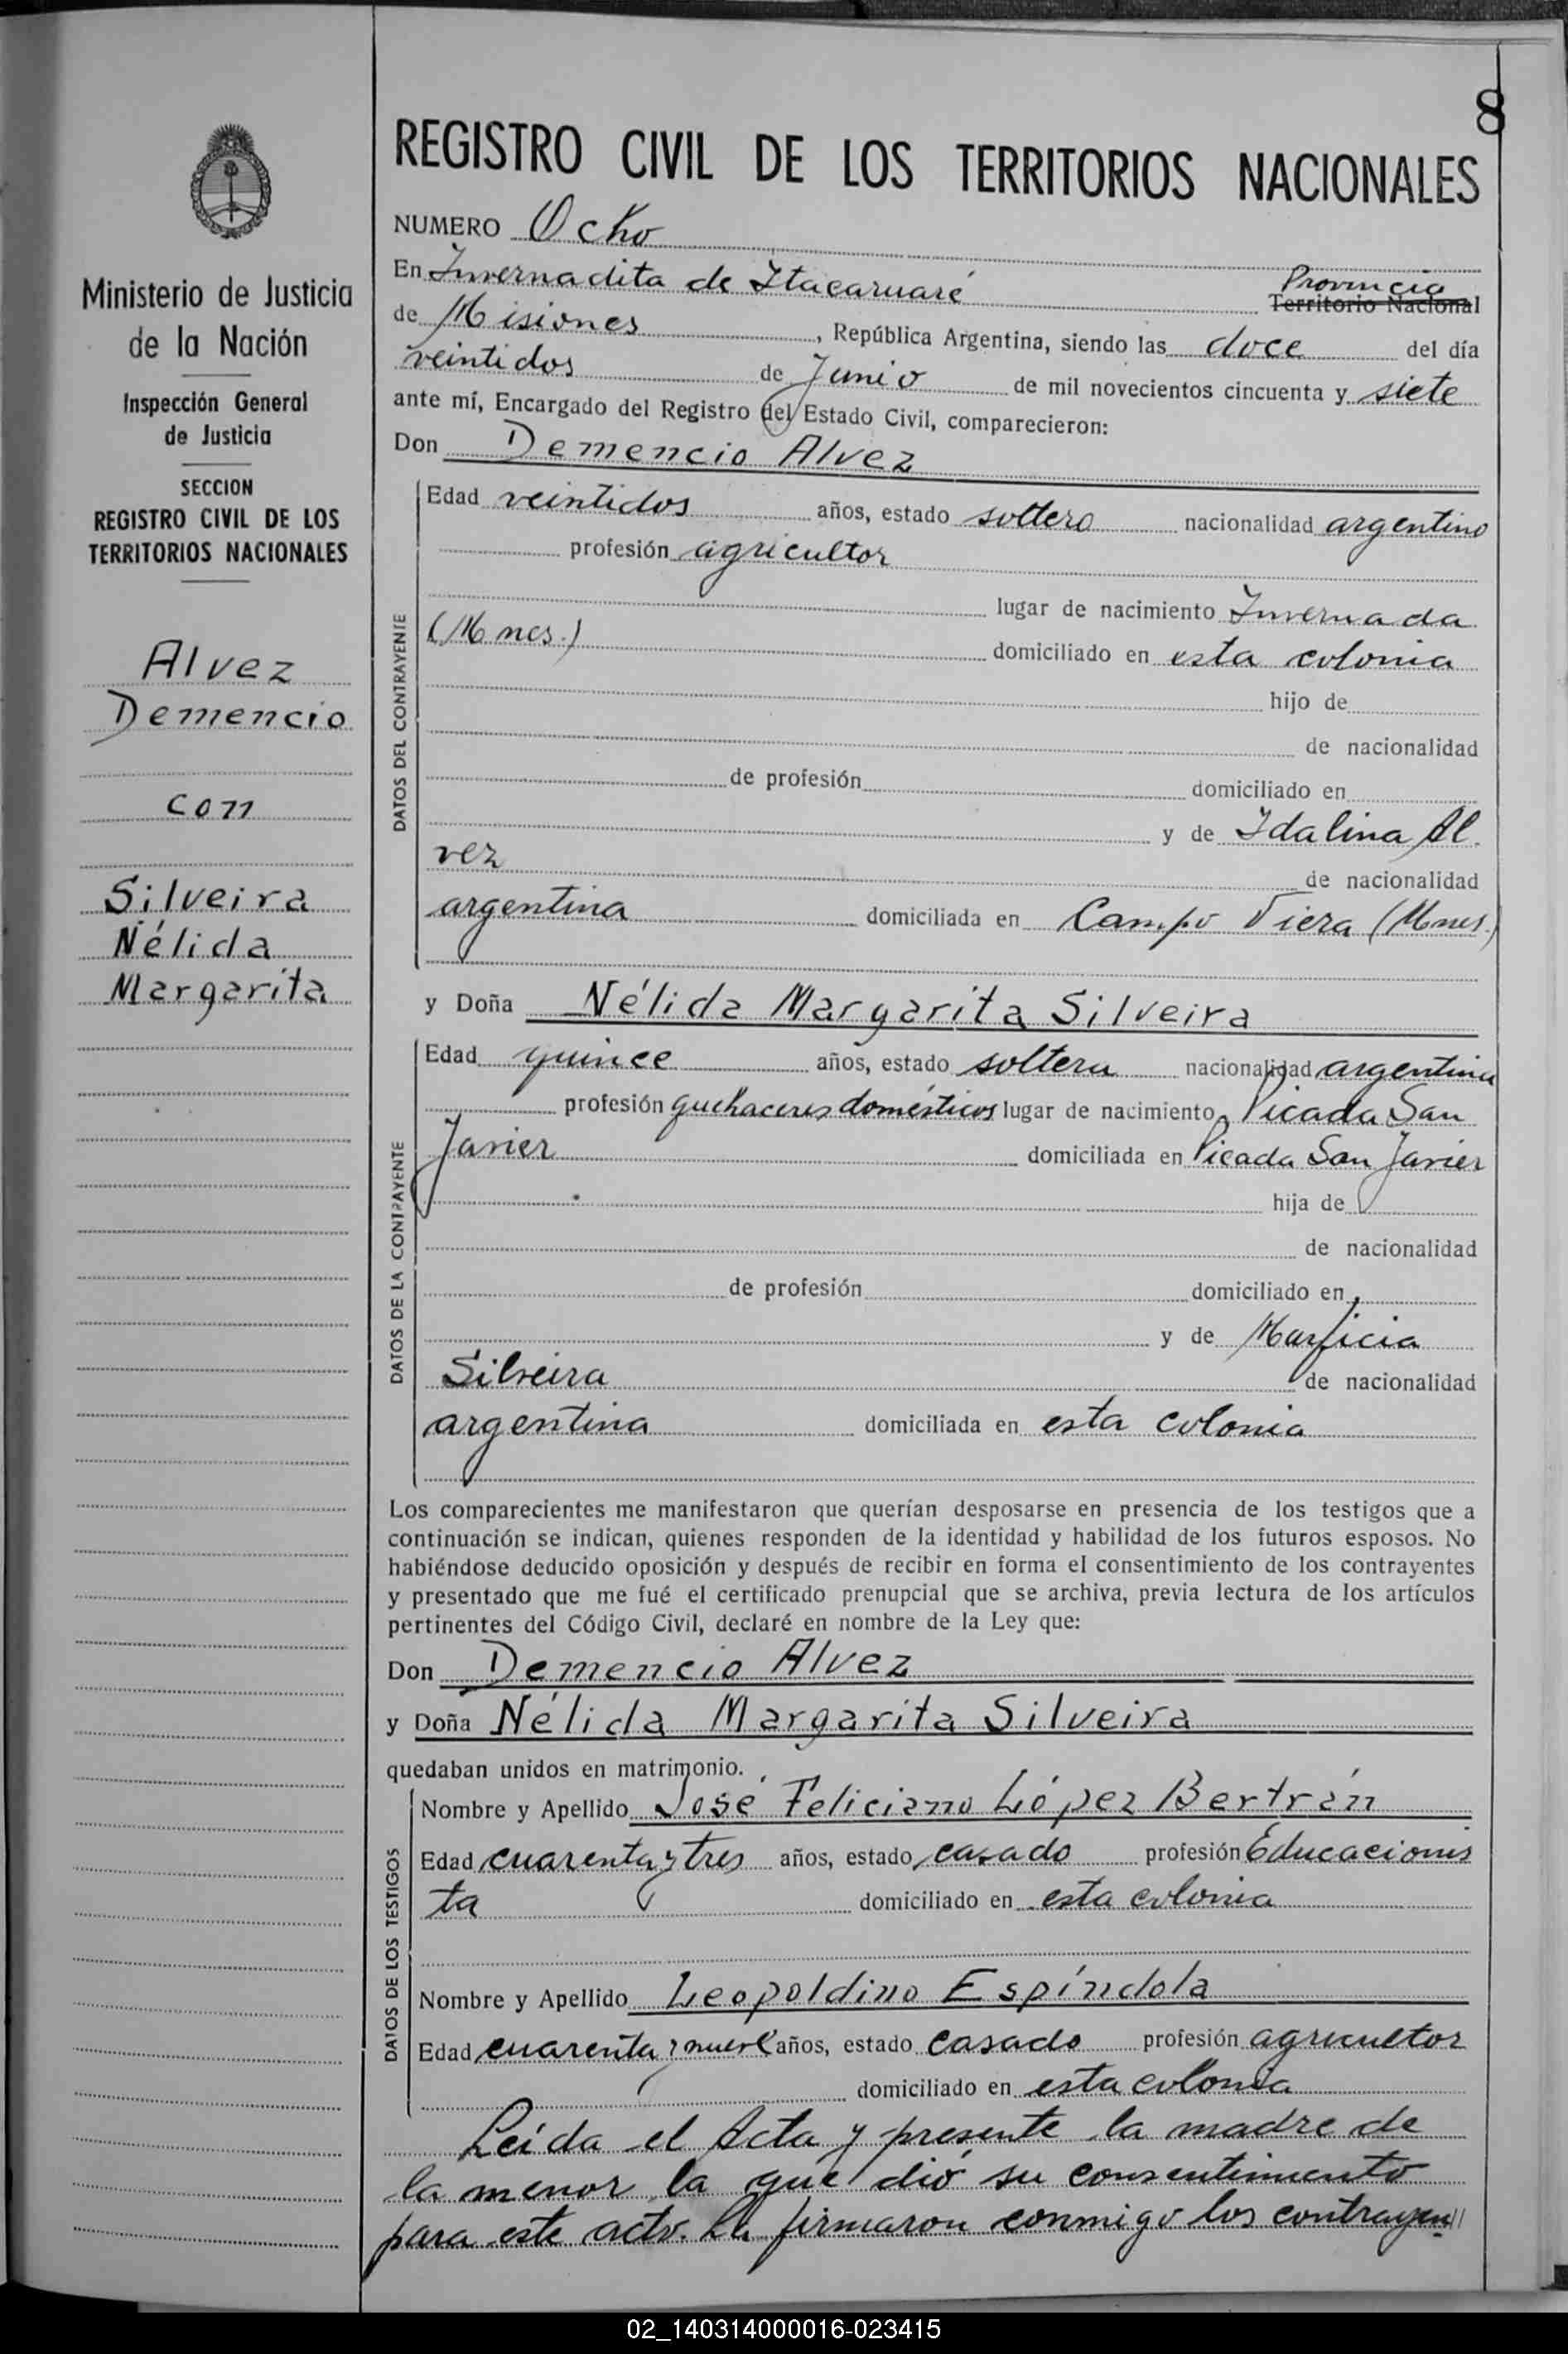 8
REGISTRO CIVIL DE LOS TERRITORIOS NACIONALES
NUMERO Ocho
En Invernadita de Itacaruaré Provincia
Territorio Nacional
de Misiones, República Argentina, siendo las doce del día
veintidos de Junio de mil novecientos cincuenta y siete
ante mí, Encargado del Registro del Estado Civil, comparecieron:
Don Demencio Alvez
DATOS DEL CONTRAYENTE
Edad veintidos años, estado soltero nacionalidad argentino
profesión agricultor
lugar de nacimiento Invernada
(Mnes.) domiciliado en esta colonia
hijo de
de nacionalidad
de profesión domiciliado en
y de Idalina Al
vez de nacionalidad
argentina domiciliada en Campo Viera (Mnes.)
y Doña Nélida Margarita Silveira
DATOS DE LA CONTRAYENTE
Edad quince años, estado soltera nacionalidad argentina
profesión quehaceres domésticos lugar de nacimiento Picada San
Javier domiciliada en Picada San Javier
hija de
de nacionalidad
de profesión domiciliado en
y de
Silveira de nacionalidad
argentina domiciliada en esta colonia
Los comparecientes me manifestaron que querían desposarse en presencia de los testigos que a
continuación se indican, quienes responden de la identidad y habilidad de los futuros esposos. No
habiéndose deducido oposición y después de recibir en forma el consentimiento de los contrayentes
y presentado que me fué el certificado prenupcial que se archiva, previa lectura de los artículos
pertinentes del Código Civil, declaré en nombre de la Ley que:
Don Demencio Alvez
y Doña Nélida Margarita Silveira
quedaban unidos en matrimonio.
DATOS DE LOS TESTIGOS
Nombre y Apellido José Feliciano López Bertrán
Edad cuarenta y tres años, estado casado profesión Educacionis
ta domiciliado en esta colonia
Nombre y Apellido Leopoldino Espíndola
Edad cuarenta y nueve años, estado casado profesión agricultor
domiciliado en esta colonia
Leída el Acta y presente la madre de
la menor la que dió su consentimiento
para este acto. La firmaron conmigo los contrayen//
Ministerio de Justicia
de la Nación
Inspección General
de Justicia
SECCION
REGISTRO CIVIL DE LOS
TERRITORIOS NACIONALES
Alvez
Demencio
con
Silveira
Nélida
Margarita
02_140314000016-023415